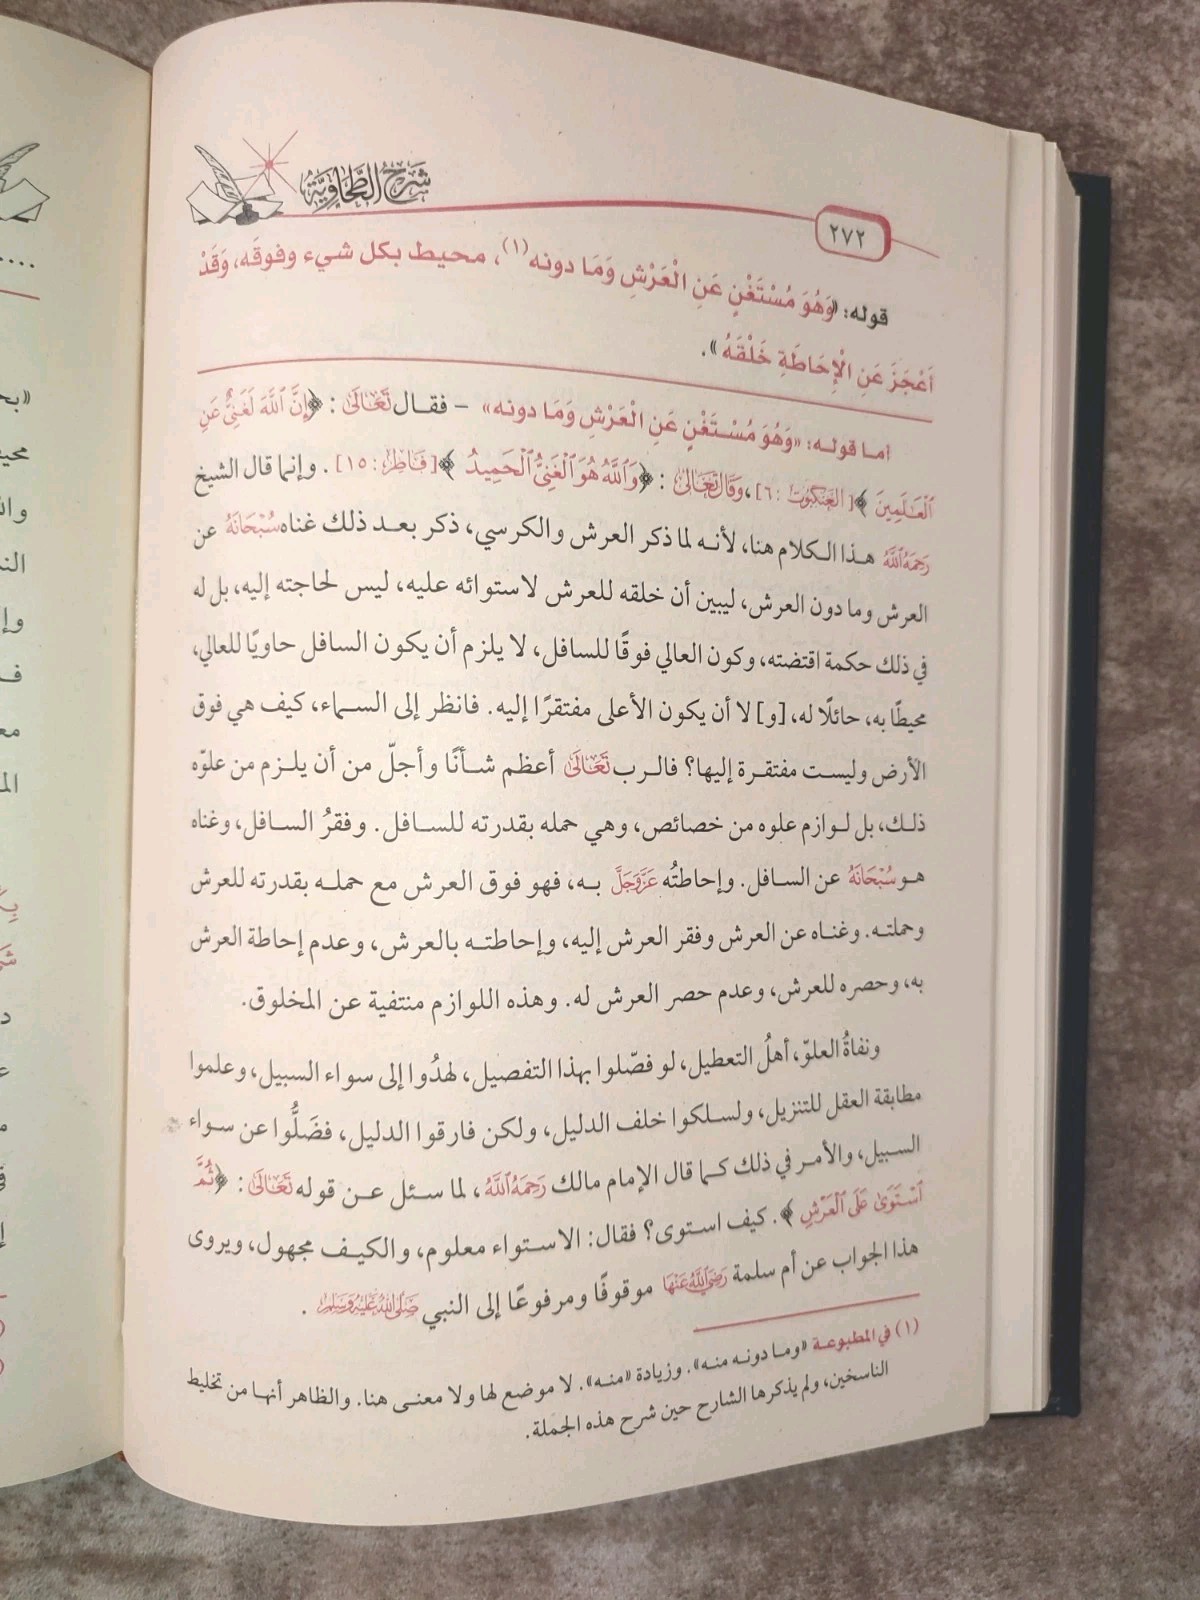 شرح الطحاوية
٢٧٢
قوله: «وَهُوَ مُسْتَغْنٍ عَنِ الْعَرْشِ وَمَا دونه(١)، محيط بكل شيء وفوقَه، وَقَدْ
أَعْجَزَ عَنِ الْإِحَاطَةِ خَلْقَهُ».
أما قوله: «وَهُوَ مُسْتَغْنٍ عَنِ الْعَرْشِ وَمَا دونه» – فقال تَعَالَى: ﴿إِنَّ ٱللَّهَ لَغَنِىٌّ عَنِ
ٱلْعَـٰلَمِينَ﴾ [العنكبوت: ٦]، وقال تَعَالَى: ﴿وَٱللَّهُ هُوَ ٱلْغَنِىُّ ٱلْحَمِيدُ﴾ [فَاطِر: ١٥]. وإنما قال الشيخ
رَحِمَهُ ٱللَّهُ هذا الكلام هنا، لأنه لما ذكر العرش والكرسي، ذكر بعد ذلك غناه سُبْحَانَهُ عن
العرش وما دون العرش، ليبين أن خلقه للعرش لاستوائه عليه، ليس لحاجته إليه، بل له
في ذلك حكمة اقتضته، وكون العالي فوقًا للسافل، لا يلزم أن يكون السافل حاويًا للعالي،
محيطًا به، حائلًا له، [و] لا أن يكون الأعلى مفتقرًا إليه. فانظر إلى السماء، كيف هي فوق
الأرض وليست مفتقرة إليها؟ فالرب تَعَالَى أعظم شأنًا وأجلّ من أن يلزم من علوّه
ذلك، بل لوازم علوه من خصائص، وهي حمله بقدرته للسافل. وفقرُ السافل، وغناه
هو سُبْحَانَهُ عن السافل. وإحاطتُه عَزَّوَجَلَّ به، فهو فوق العرش مع حمله بقدرته للعرش
وحملته. وغناه عن العرش وفقر العرش إليه، وإحاطته بالعرش، وعدم إحاطة العرش
به، وحصره للعرش، وعدم حصر العرش له. وهذه اللوازم منتفية عن المخلوق.
ونفاةُ العلوّ، أهلُ التعطيل، لو فصّلوا بهذا التفصيل، لهدُوا إلى سواء السبيل، وعلموا
مطابقة العقل للتنزيل، ولسلكوا خلف الدليل، ولكن فارقوا الدليل، فضَلُّوا عن سواء
السبيل، والأمر في ذلك كما قال الإمام مالك رَحِمَهُ ٱللَّهُ، لما سئل عن قوله تَعَالَى: ﴿ثُمَّ
ٱسْتَوَىٰ عَلَى ٱلْعَرْشِ﴾. كيف استوى؟ فقال: الاستواء معلوم، والكيف مجهول، ويروى
هذا الجواب عن أم سلمة رَضِيَ ٱللَّهُ عَنْهَا موقوفًا ومرفوعًا إلى النبي صَلَّى ٱللَّهُ عَلَيْهِ وَسَلَّمَ.
(١) في المطبوعة «وما دونه منه». وزيادة «منه». لا موضع لها ولا معنى هنا. والظاهر أنها من تخليط
الناسخين، ولم يذكرها الشارح حين شرح هذه الجملة.